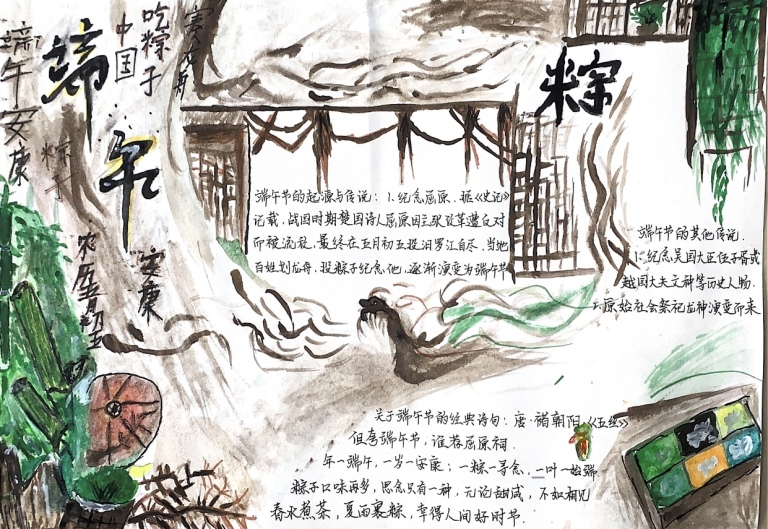 端午安康
端午
吃粽子
中国
赛龙舟
粽子
农历五月初五
安康
粽
端午节的起源与传说：1.纪念屈原．据《史记》
记载，战国时期楚国诗人屈原因主张改革遭反对
而被流放，最终在五月初五投汨罗江自尽．当地
百姓划龙舟、投粽子纪念他，逐渐演变为端午节
端午节的其他传说．
1.纪念吴国大臣伍子胥或
越国大夫文种等历史人物．
2.原始社会祭祀龙神演变而来
关于端午节的经典诗句：唐·褚朝阳《五丝》
但夸端午节，谁荐屈原祠．
年一端午，一岁一安康；一粽一寻念，一叶一端
粽子口味再多，思念只有一种，无论甜咸，不如相见
春水煮茶，夏雨裹粽，幸得人间好时节．